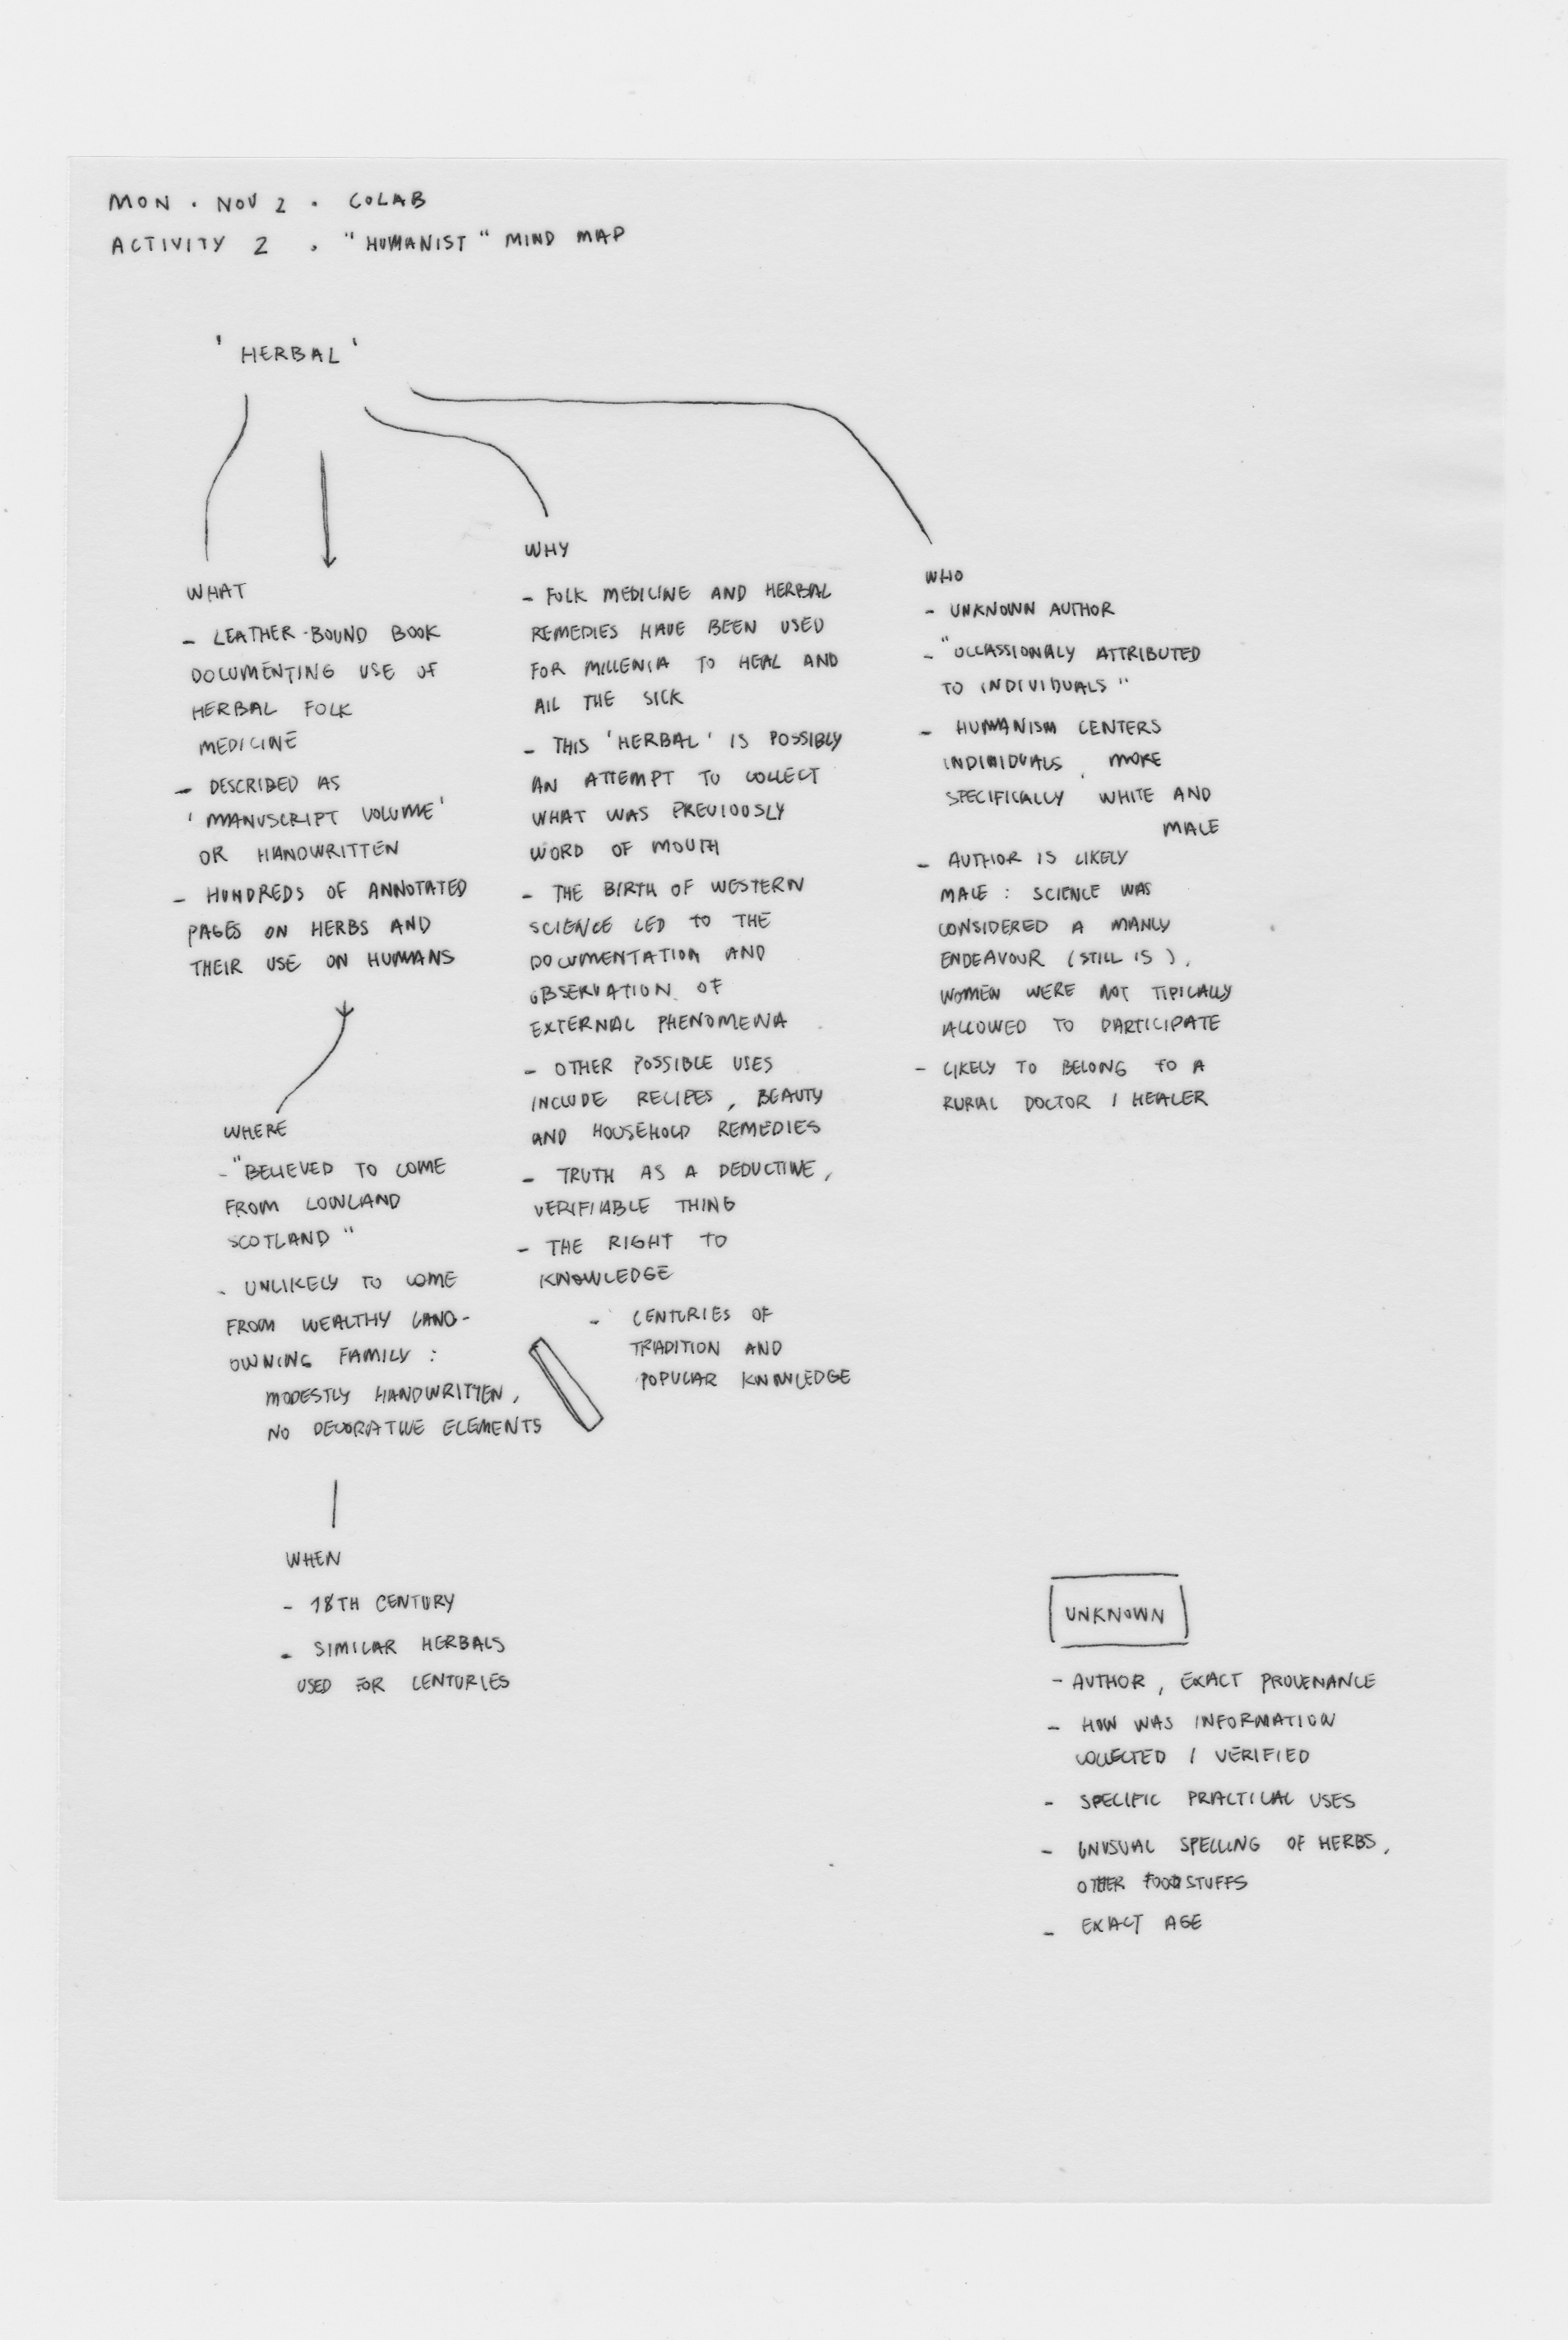 MON . NOV 2 . COLAB
ACTIVITY 2 . "HUMANIST" MIND MAP
'HERBAL'
WHAT
- LEATHER-BOUND BOOK
DOCUMENTING USE OF
HERBAL FOLK
MEDICINE
- DESCRIBED AS
'MANUSCRIPT VOLUME'
OR HANDWRITTEN
- HUNDREDS OF ANNOTATED
PAGES ON HERBS AND
THEIR USE ON HUMANS
WHERE
- "BELIEVED TO COME
FROM LOWLAND
SCOTLAND"
- UNLIKELY TO COME
FROM WEALTHY LAND-
OWNING FAMILY :
MODESTLY HANDWRITTEN,
NO DECORATIVE ELEMENTS
WHEN
- 18TH CENTURY
- SIMILAR HERBALS
USED FOR CENTURIES
WHY
- FOLK MEDICINE AND HERBAL
REMEDIES HAVE BEEN USED
FOR MILLENIA TO HEAL AND
AIL THE SICK
- THIS 'HERBAL' IS POSSIBLY
AN ATTEMPT TO COLLECT
WHAT WAS PREVIOUSLY
WORD OF MOUTH
- THE BIRTH OF WESTERN
SCIENCE LED TO THE
DOCUMENTATION AND
OBSERVATION OF
EXTERNAL PHENOMENA
- OTHER POSSIBLE USES
INCLUDE RECIPES, BEAUTY
AND HOUSEHOLD REMEDIES
- TRUTH AS A DEDUCTIVE,
VERIFIABLE THING
- THE RIGHT TO
KNOWLEDGE
- CENTURIES OF
TRADITION AND
POPULAR KNOWLEDGE
WHO
- UNKNOWN AUTHOR
- "OCCASSIONALY ATTRIBUTED
TO INDIVIDUALS"
- HUMANISM CENTERS
INDIVIDUALS, MORE
SPECIFICALLY WHITE AND
MALE
- AUTHOR IS LIKELY
MALE : SCIENCE WAS
CONSIDERED A MANLY
ENDEAVOUR (STILL IS),
WOMEN WERE NOT TIPICALLY
ALLOWED TO PARTICIPATE
- LIKELY TO BELONG TO A
RURAL DOCTOR / HEALER
UNKNOWN
- AUTHOR, EXACT PROVENANCE
- HOW WAS INFORMATION
COLLECTED / VERIFIED
- SPECIFIC PRACTICAL USES
- UNUSUAL SPELLING OF HERBS,
OTHER FOODSTUFFS
- EXACT AGE